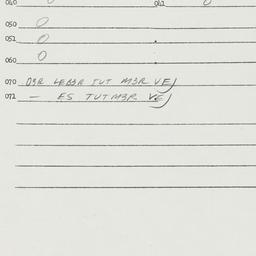 040 0 042 0
050 0
052 0 .
060 0 .
070 DER LEBER TUT MER VE)
072 — ES TUT MER VE)